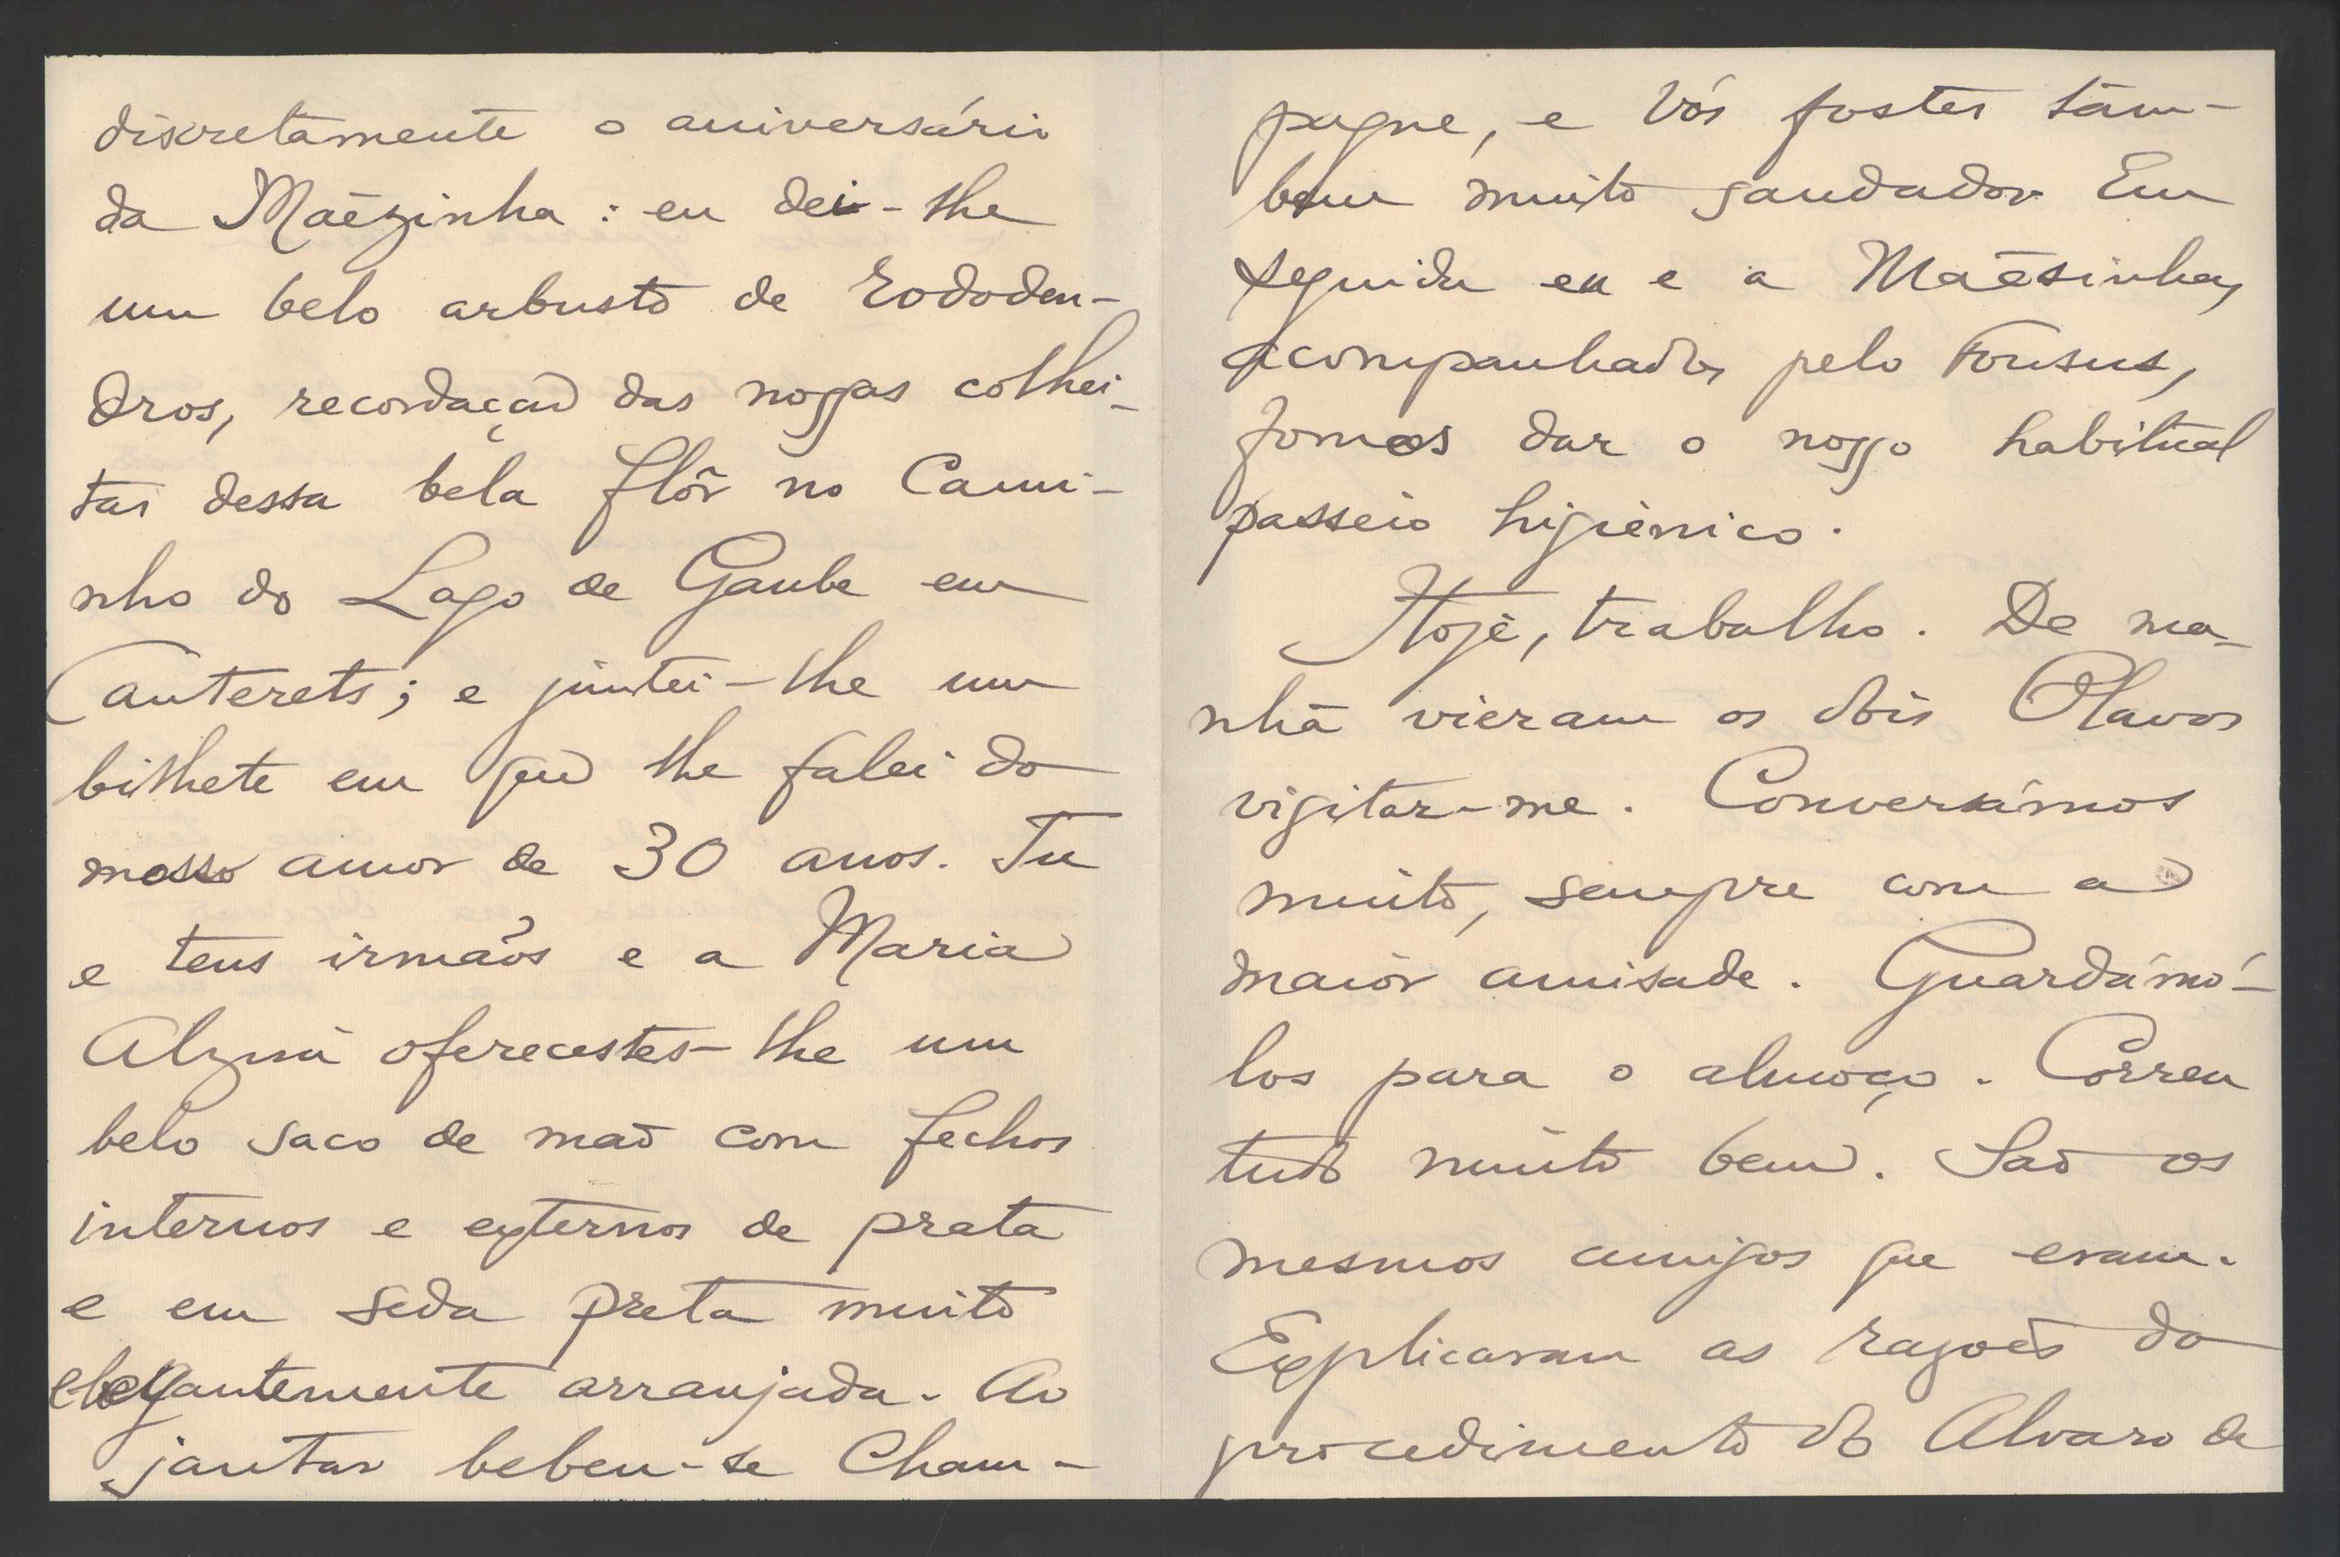 discretamente o aniversário
da Maēzinha: eu dei-lhe
um belo arbusto de rododen-
dros, recordação das nossas colhei-
tas dessa bela flôr no Cami-
nho do Lago de Gaube em
Cauterets; e juntei-lhe um
bilhete em que lhe falei do
nosso amor de 30 anos. Tu
e teus irmãos e a Maria
Alzira oferecestes-lhe um
belo saco de mão com fechos
internos e externos de prata
e em seda preta muito
elegantemente arranjada. Ao
jantar bebeu-se Cham-
pagne, e Vós fostes tâm-
bem muito saudados. Em
seguida eu e a Maēsinha,
acompanhados pelo
fomos dar o nosso habitual
passeio higiènico.
Hoje, trabalho. De ma-
nhã vieram os dois Olavos
visitar-me. Conversámos
muito, sempre com a
maior amisade. Guardámó-
los para o almoço. Correu
tudo muito bem. São os
mesmos amigos que eram.
Explicaram as razoēs do
procedimento do Alvaro de